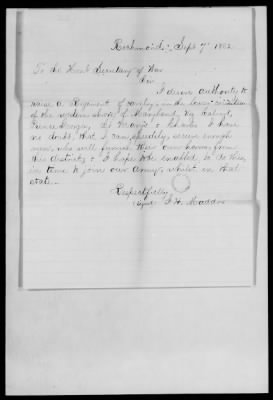 Richmond, Sept 7" 1862
To the Honble Secretary of War
Sir
I desire authority to
raise a Regiment of cavalry in the lower counties
of the western shore of Maryland, viz Calvert,
Prince Georges, St Mary's & Charles. I have
no doubt that I can speedily secure enough
men, who will furnish their own horses, from
this district, & I hope to be enabled to do this,
in time to join our Army, whilst in that
state.
Respectfully
signed J. H. Maddox